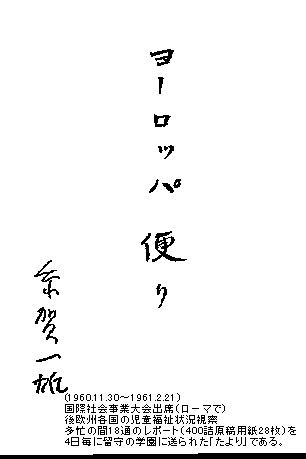 ヨーロッパ便り
糸賀一雄
(1960.11.30~1961.2.21)
国際社会事業大会出席(ローマで)
後欧州各国の児童福祉状況視察
多忙の間18通のレポート(400詰原稿用紙28枚)を
4日毎に留守の学園に送られた「たより」である。